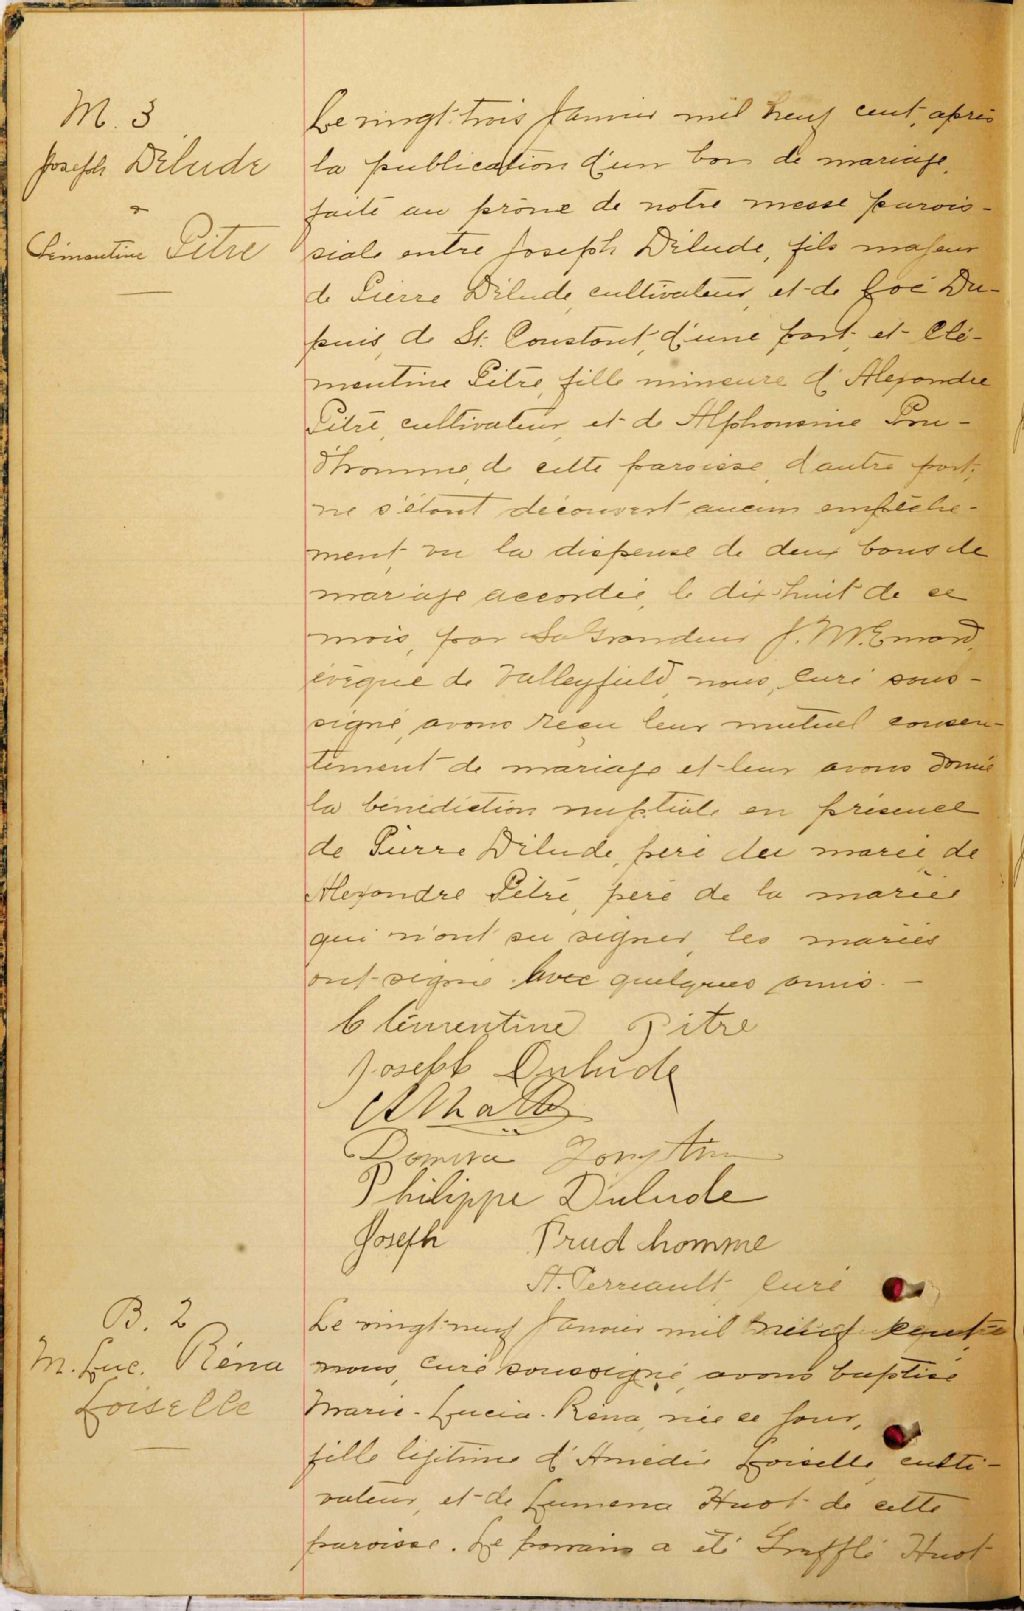 M. 3
Joseph Délude
&
Clémentine Pitre
Le vingt-trois Janvier mil neuf cent, après
la publication d'un ban de mariage,
faite au prône de notre messe parois-
siale entre Joseph Délude, fils majeur
de Pierre Délude, cultivateur, et de Zoé Du-
puis, de St. Constant, d'une part, et Clé-
mentine Pitre, fille mineure d'Alexandre
Pitre, cultivateur, et de Alphonsine Pru-
d'homme, de cette paroisse, d'autre part,
ne s'étant découvert aucun empêche-
ment, vu la dispense de deux bans de
mariage accordée, le dix-huit de ce
mois, par Sa Grandeur J. M. Emard,
évêque de Valleyfield, nous, curé sous-
signé, avons reçu leur mutuel consen-
tement de mariage et leur avons donné
la bénédiction nuptiale en présence
de Pierre Délude, père du marié de
Alexandre Pitre, père de la mariée
qui n'ont su signer, les mariés
ont signé avec quelques amis. -
Clémentine Pitre
Joseph Dulude
Philippe Dulude
Joseph Prudhomme
A. Perreault, curé
B. 2
M. Luc. Réna
Loiselle
Le vingt-neuf Janvier mil neuf cent,
nous, curé soussigné, avons baptisé
Marie-Lucia-Réna, née ce jour,
fille légitime d'Amédée Loiselle, culti-
vateur, et de Lumena Huot de cette
paroisse. Le parrain a été Huot